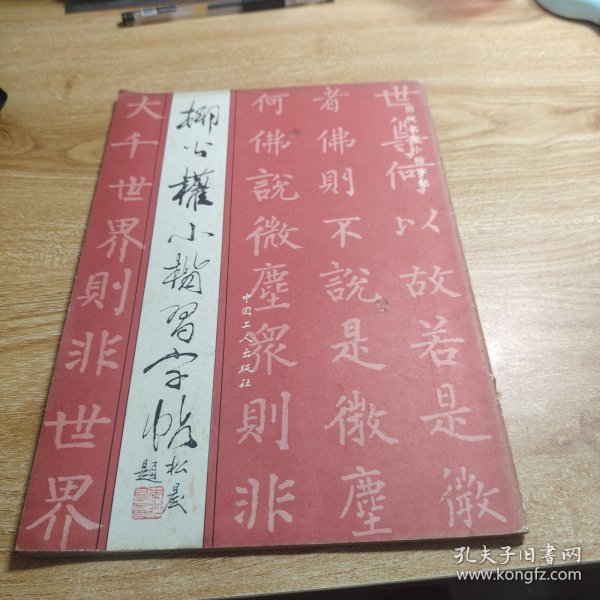 历代名家小楷字帖
世尊何以故若是微
者佛則不說是微塵
何佛說微塵眾則非
中国工人出版社
柳公權小楷習字帖
松晨題
大千世界則非世界
孔夫子旧书网
www.kongfz.com